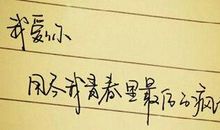 我爱你
用尽我青春里最后的疯